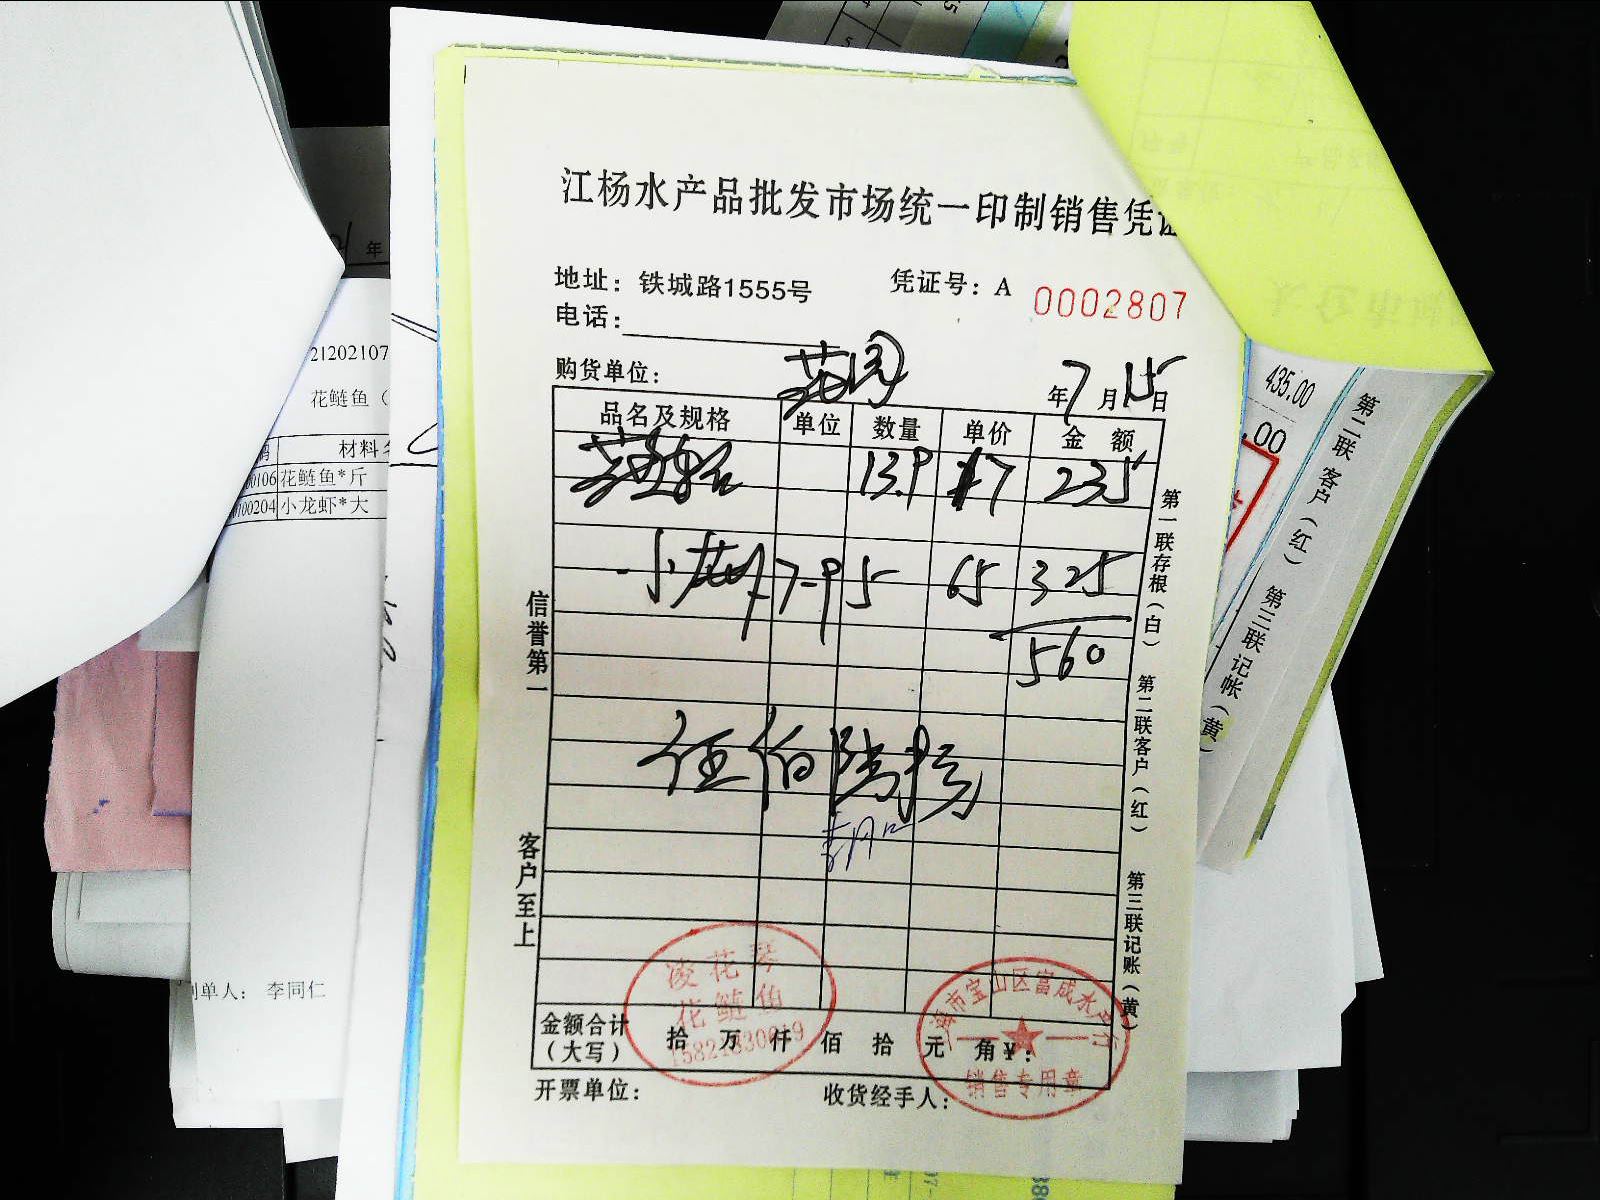 江杨水产品批发市场统一印制销售凭证
地址：铁城路1555号
凭证号：A 0002807
电话：
购货单位：花园
年7月15日
品名及规格 单位 数量 单价 金额
花鲢 13.9 17 235
小龙虾 7-9 5 65 325
560
伍佰陆拾
信誉第一
客户至上
第一联存根（白）
第二联客户（红）
第三联记账（黄）
凌花琴
花鲢鱼
上海市宝山区富成水产行
销售专用章
金额合计（大写） 拾 万 仟 佰 拾 元 角 ¥：
开票单位：
收货经手人：
年
21202107
花鲢鱼（
材料名
00106 花鲢鱼*斤
100204 小龙虾*大
制单人： 李同仁
435.00
.00
第二联客户（红）
第三联记帐（黄）